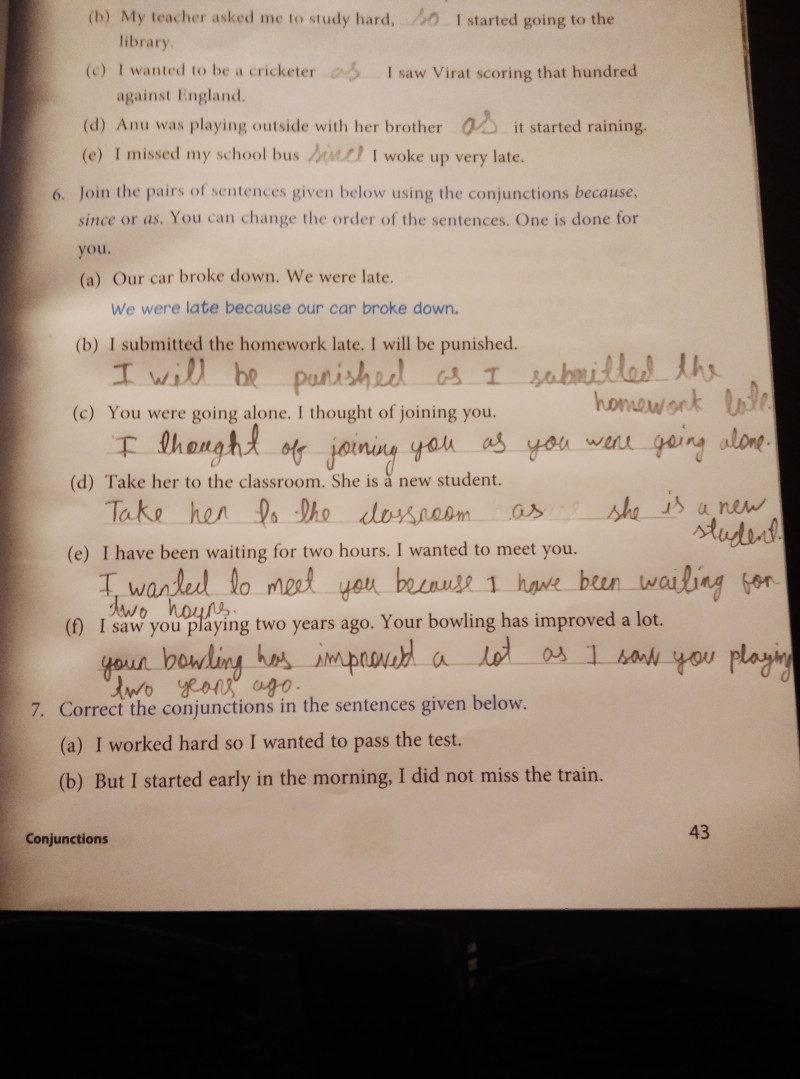 (b) My teacher asked me to study hard, so I started going to the
library.
(c) I wanted to be a cricketer as I saw Virat scoring that hundred
against England.
(d) Anu was playing outside with her brother as it started raining.
(e) I missed my school bus since I woke up very late.
6. Join the pairs of sentences given below using the conjunctions because,
since or as. You can change the order of the sentences. One is done for
you.
(a) Our car broke down. We were late.
We were late because our car broke down.
(b) I submitted the homework late. I will be punished.
I will be punished as I submitted the
homework late.
(c) You were going alone. I thought of joining you.
I thought of joining you as you were going alone.
(d) Take her to the classroom. She is a new student.
Take her to the classroom as she is a new
student.
(e) I have been waiting for two hours. I wanted to meet you.
I wanted to meet you because I have been waiting for
two hours.
(f) I saw you playing two years ago. Your bowling has improved a lot.
your bowling has improved a lot as I saw you playing
two years ago.
7. Correct the conjunctions in the sentences given below.
(a) I worked hard so I wanted to pass the test.
(b) But I started early in the morning, I did not miss the train.
Conjunctions
43